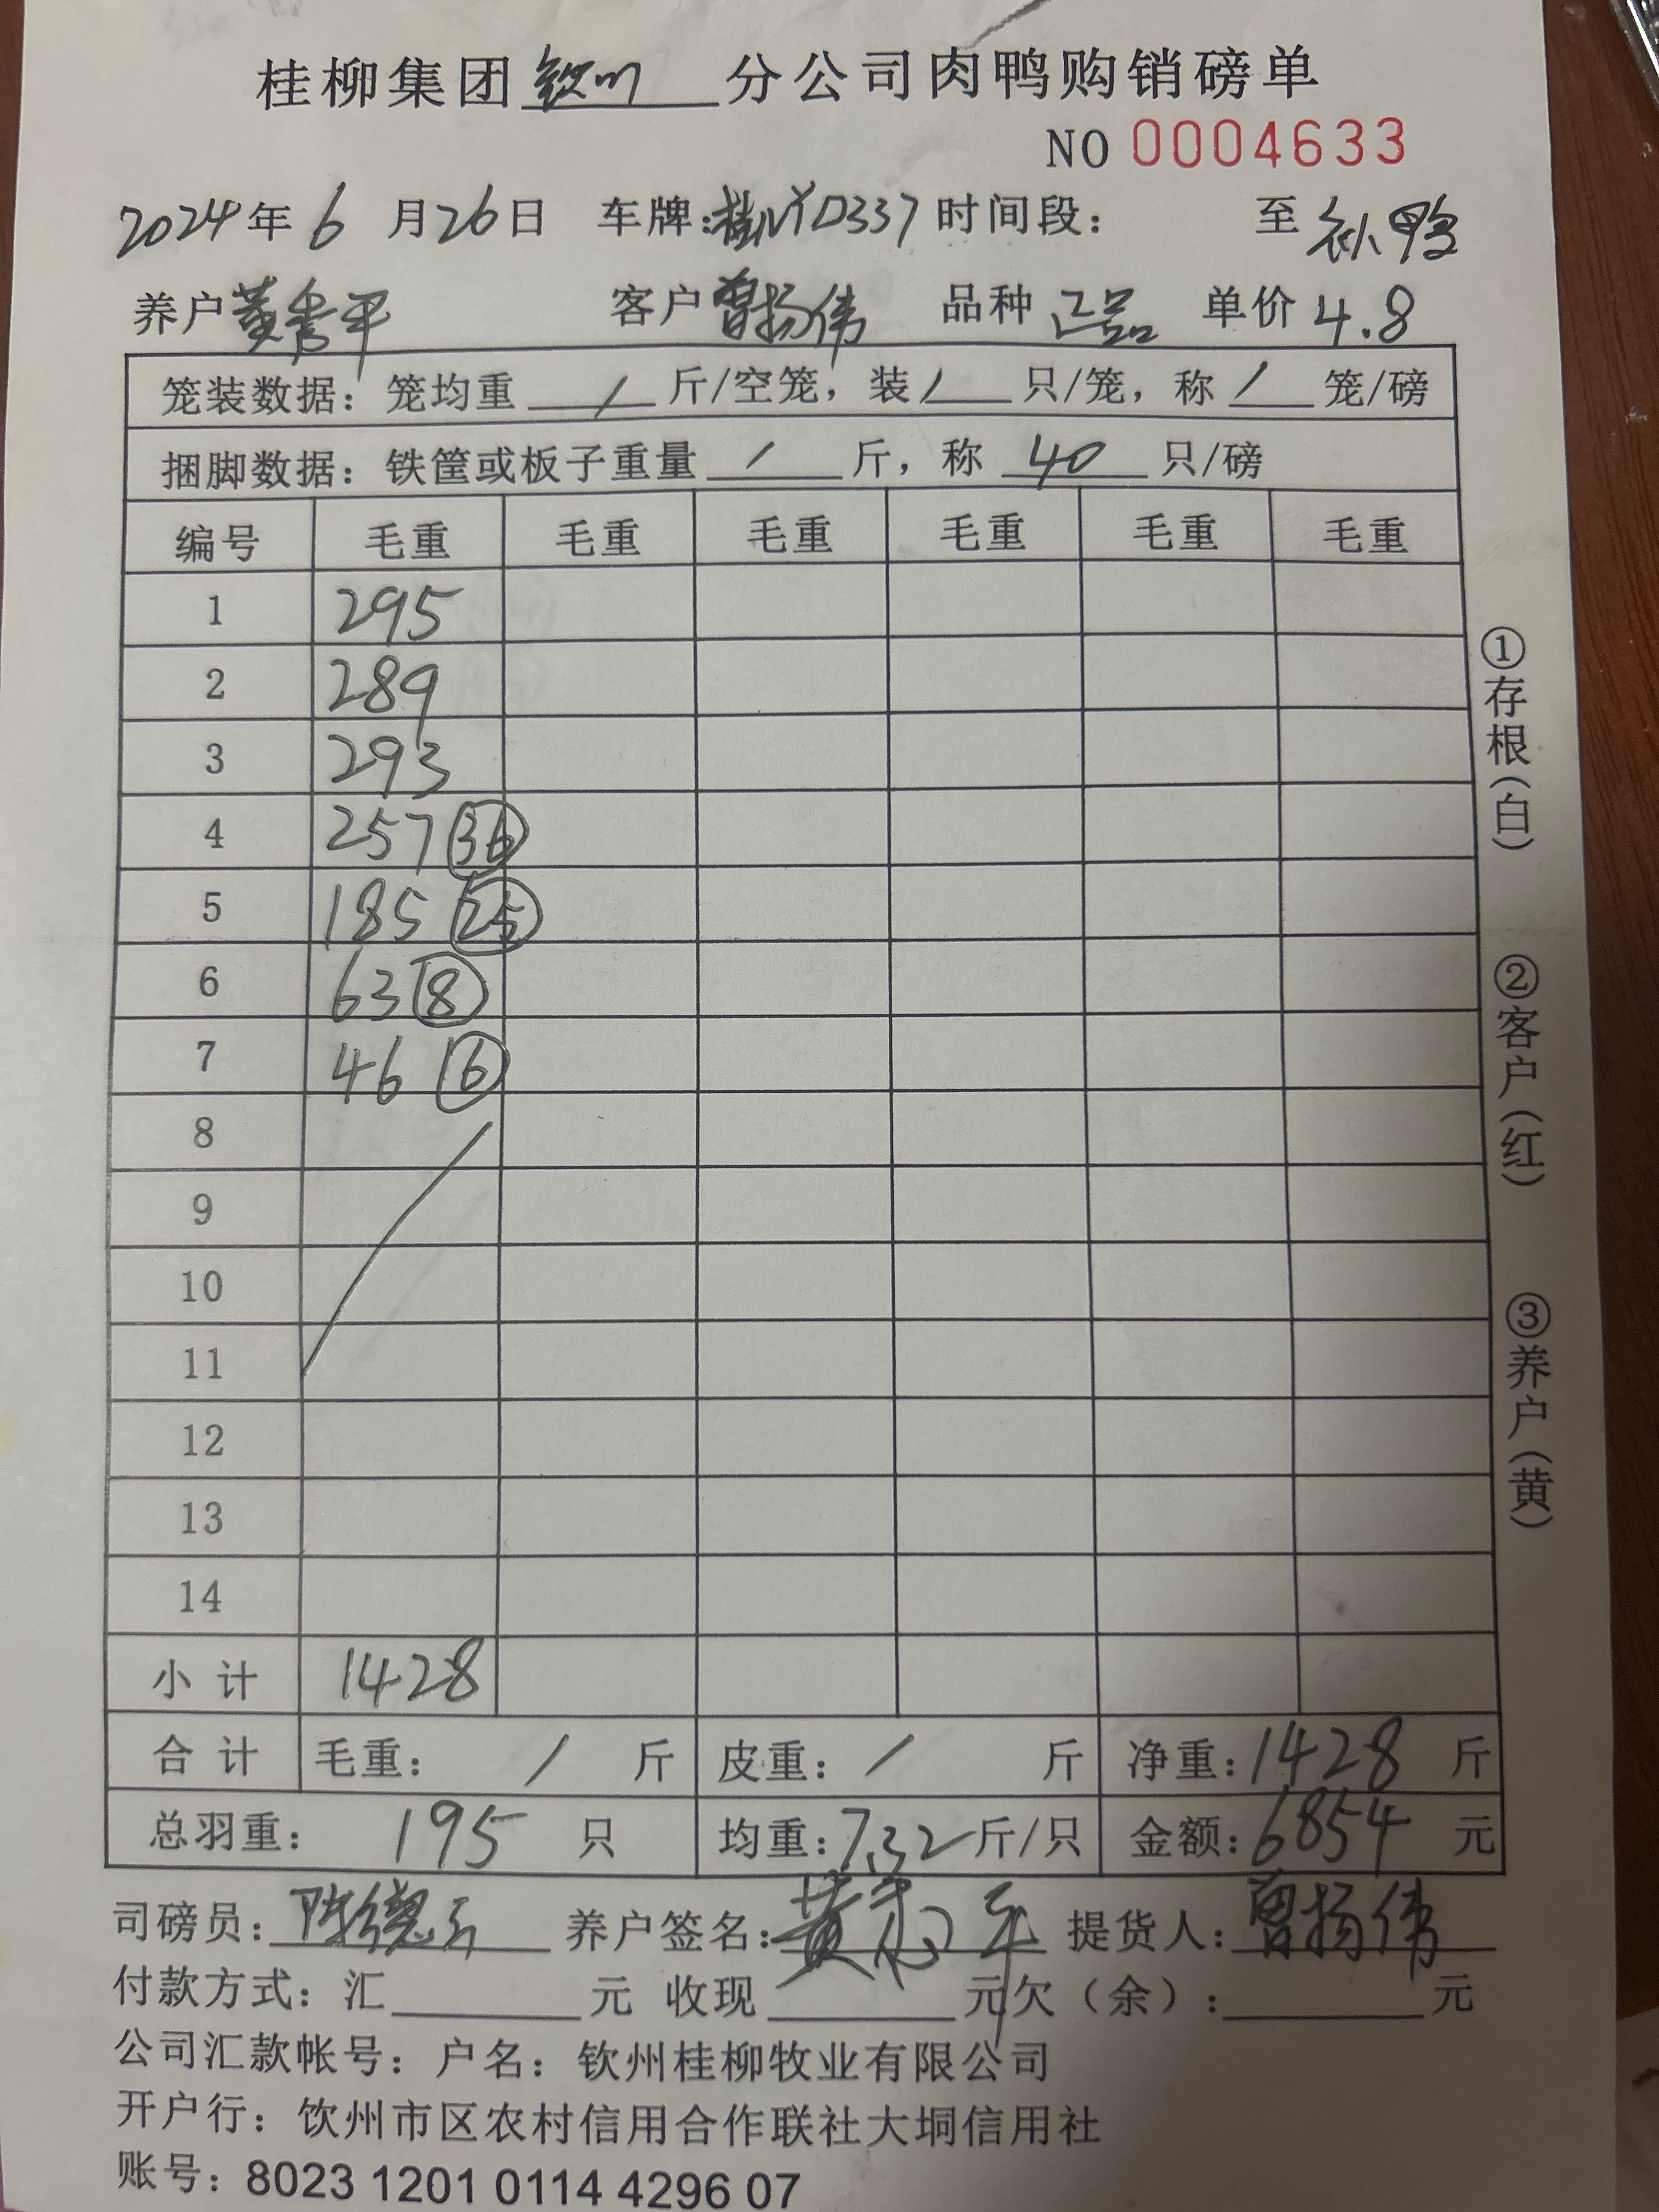 桂柳集团钦州分公司肉鸭购销磅单
NO 0004633
2024年6月26日 车牌:桂NYD337 时间段: 至 补鸭
养户黄秀平 客户曾扬伟 品种 正品 单价 4.8
笼装数据: 笼均重 / 斤/空笼, 装 / 只/笼, 称 / 笼/磅
捆脚数据: 铁筐或板子重量 / 斤, 称 40 只/磅
编号 毛重 毛重 毛重 毛重 毛重 毛重
1 295
2 289
3 293
4 257 36
5 185 25
6 63 8
7 46 16
8
9
10
11
12
13
14
小计 1428
合计 毛重: / 斤 皮重: / 斤 净重:1428 斤
总羽重: 195 只 均重:7.32斤/只 金额:6854 元
司磅员: 养户签名: 黄秀平 提货人: 曾扬伟
付款方式: 汇 元 收现 元欠(余): 元
公司汇款帐号: 户名: 钦州桂柳牧业有限公司
开户行: 钦州市区农村信用合作联社大垌信用社
账号: 8023 1201 0114 4296 07
①存根(白)
②客户(红)
③养户(黄)